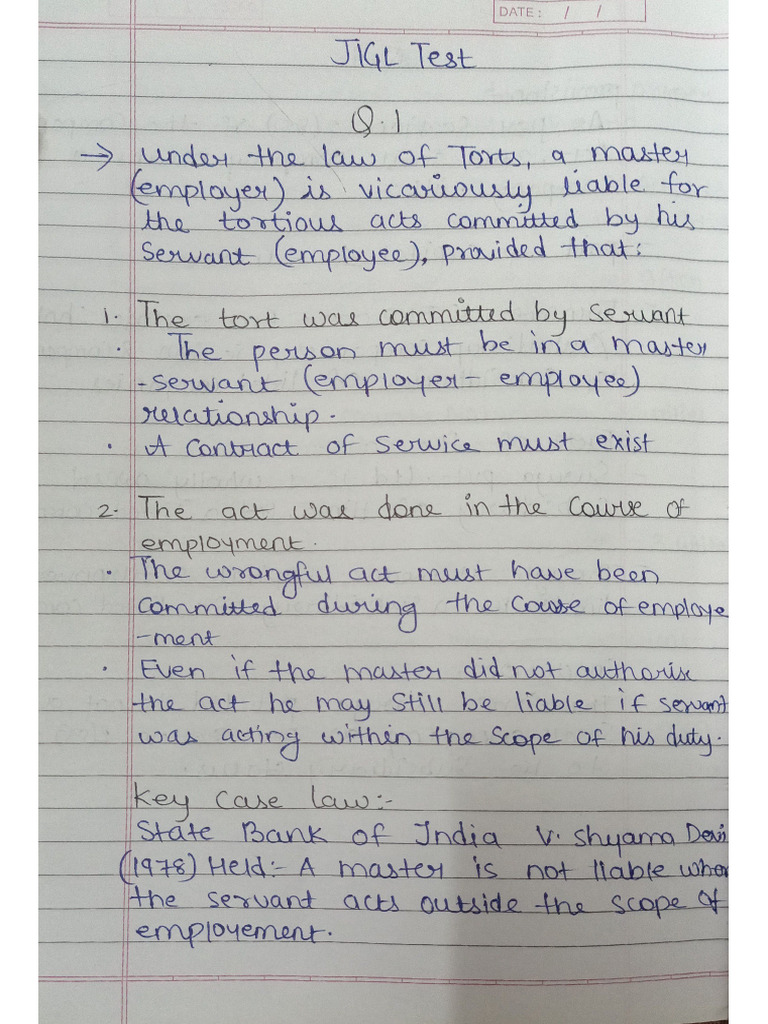 DATE: / /
JIGL Test
Q.1
→ under the law of Torts, a master
(employer) is vicariously liable for
the tortious acts committed by his
Servant (employee), provided that:
1. The tort was committed by Servant
• The person must be in a master
-servant (employer- employee)
relationship.
• A Contract of Service must exist
2. The act was done in the Course of
employment.
• The wrongful act must have been
Committed during the Course of employe
-ment
• Even if the master did not authorise
the act he may Still be liable if servant
was acting within the Scope of his duty.
Key Case law:-
State Bank of India V. Shyama Devi
(1978) Held:- A master is not liable when
the servant acts outside the scope of
employement.